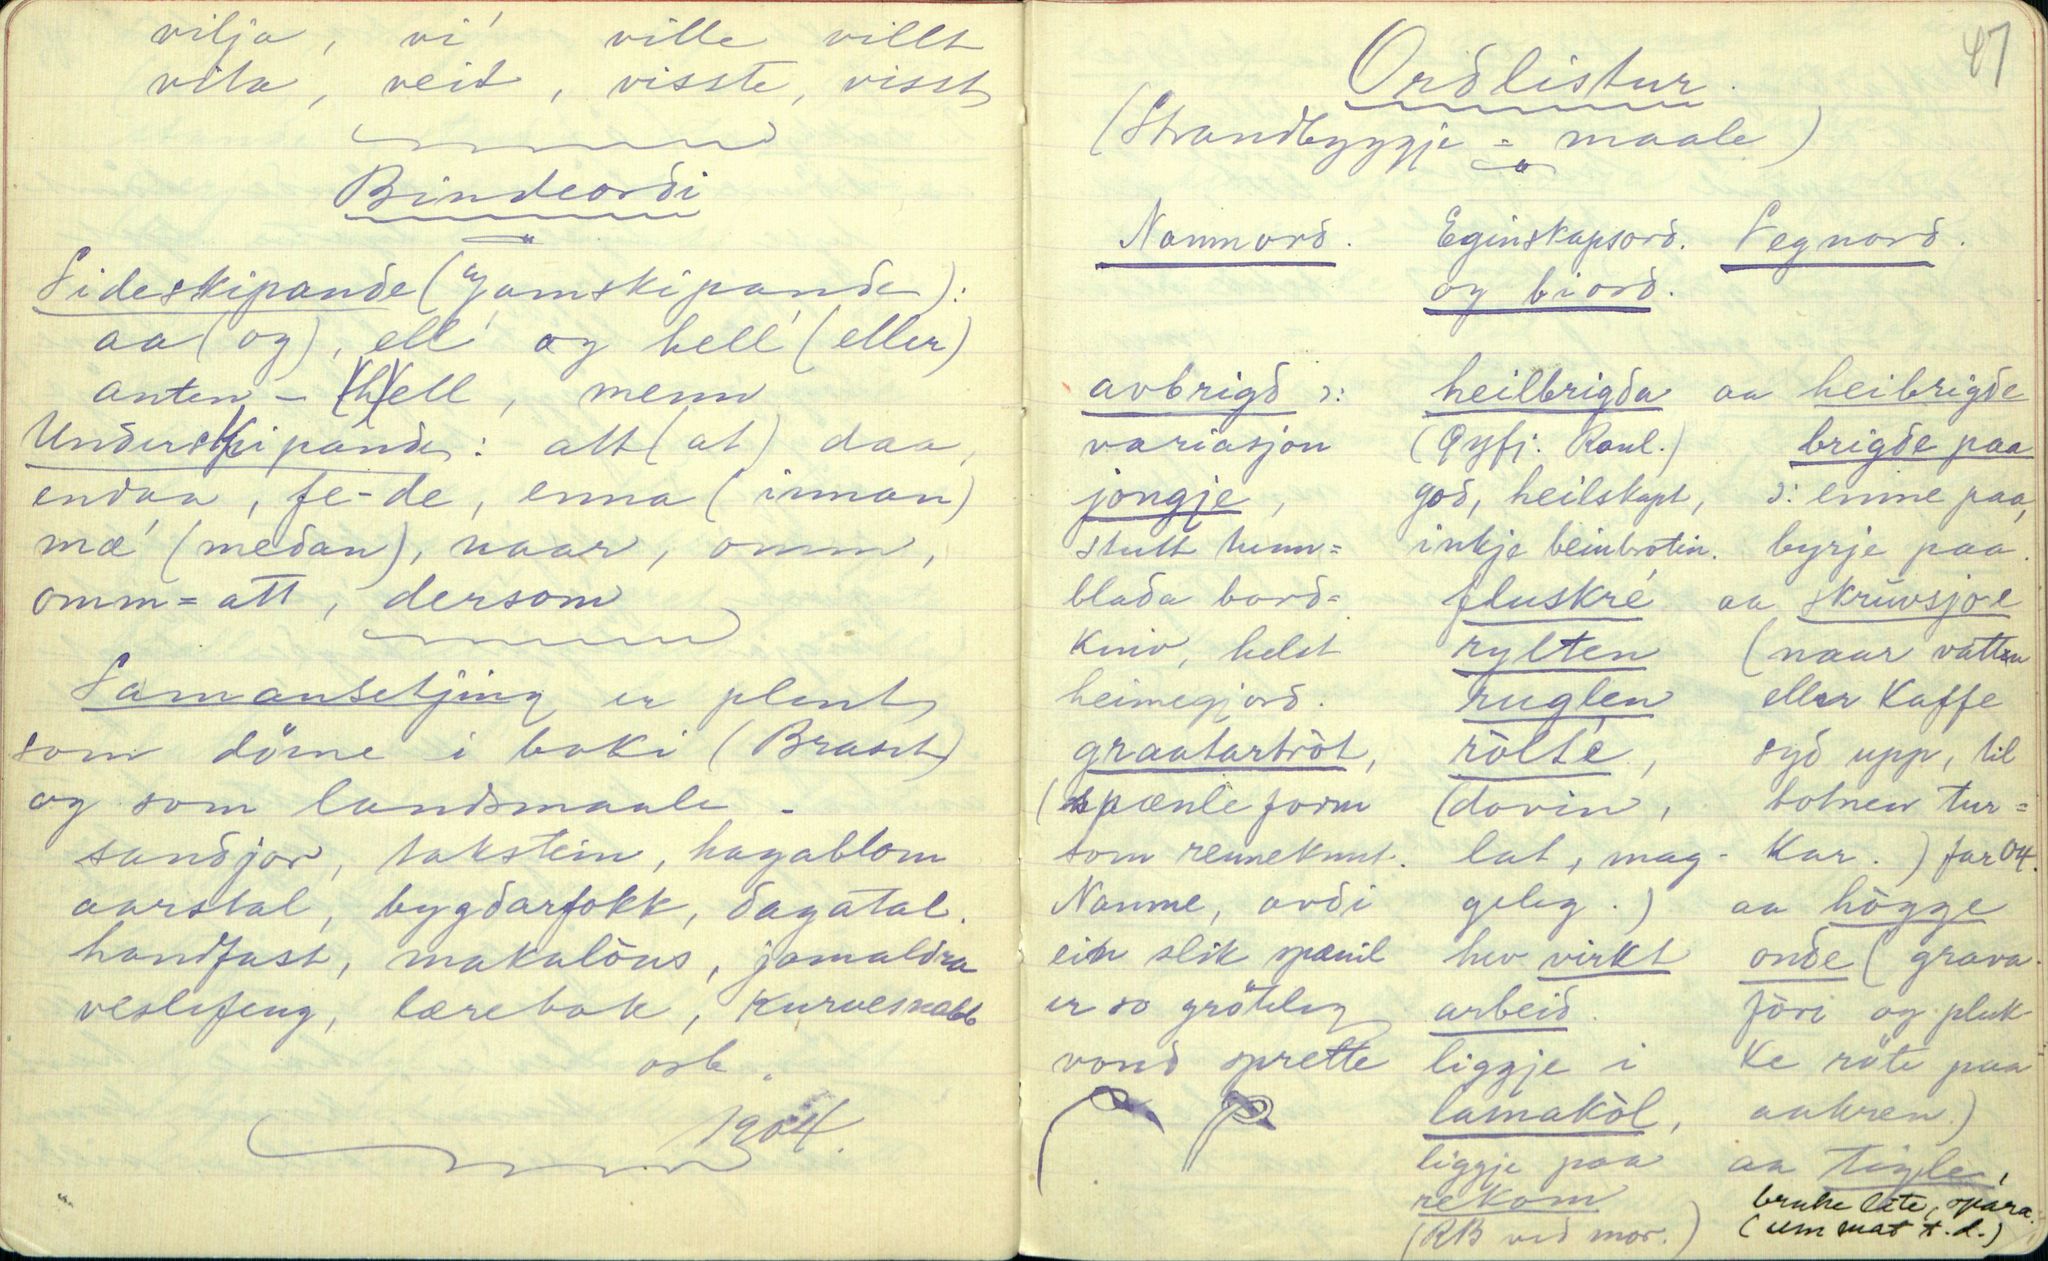 vilja, vi´ ville villt
vita, veit, visste, visst
Bindeorði
Sideskipande (Jamskipande):
aa (og), ell´ og hell´ (eller)
anten – (h)ell, menn
Underskipande: att (at) daa,
endaa, fe-de, enna (innan)
mæ´ (medan), naar, omm,
omm=att, dersom
Samansetjing er plent
som döme i boki (Braset)
og som landsmaale –
sandjor, takstein, hagablom
aarstal, bygdarfokk, dagatal.
handfast, makalöus, jamaldra
veslefeng, lærebok, kurvesnabb
osb.
1904.
47
Orðlistur.
(Strandbyggje = maale)
Namnord. Eginskapsord. Segnord.
og biord.
avbrigd ɔ: heilbrigda aa heibrigde
variasjon (Gyfj: Raul.) brigde paa
jongje, god, heilskapt, ɔ: emne paa,
stutt tunn= inkje beinbrotin. byrje paa.
blada bord= fluskré aa skrüvsjoe
kniv, helst rylten (naar vatten
heimegjord. ruglen eller Kaffe
graatartròt, ròlté, syd upp, til
(spænleform (dovin, botnen tur=
som renneknut. lat, mag- kar.) far 04.
Namne, avdi geleg.) aa hògge
ein slik spænil hev virkt onde (grava
er so gröteleg arbeid. jòri og pluk-
vond sprette liggje i ke röte paa
lamakòl, aakren)
liggje paa aa tigle,
rekom bruke lite, spara.
(RB ved mor.) (um mat t.d.)